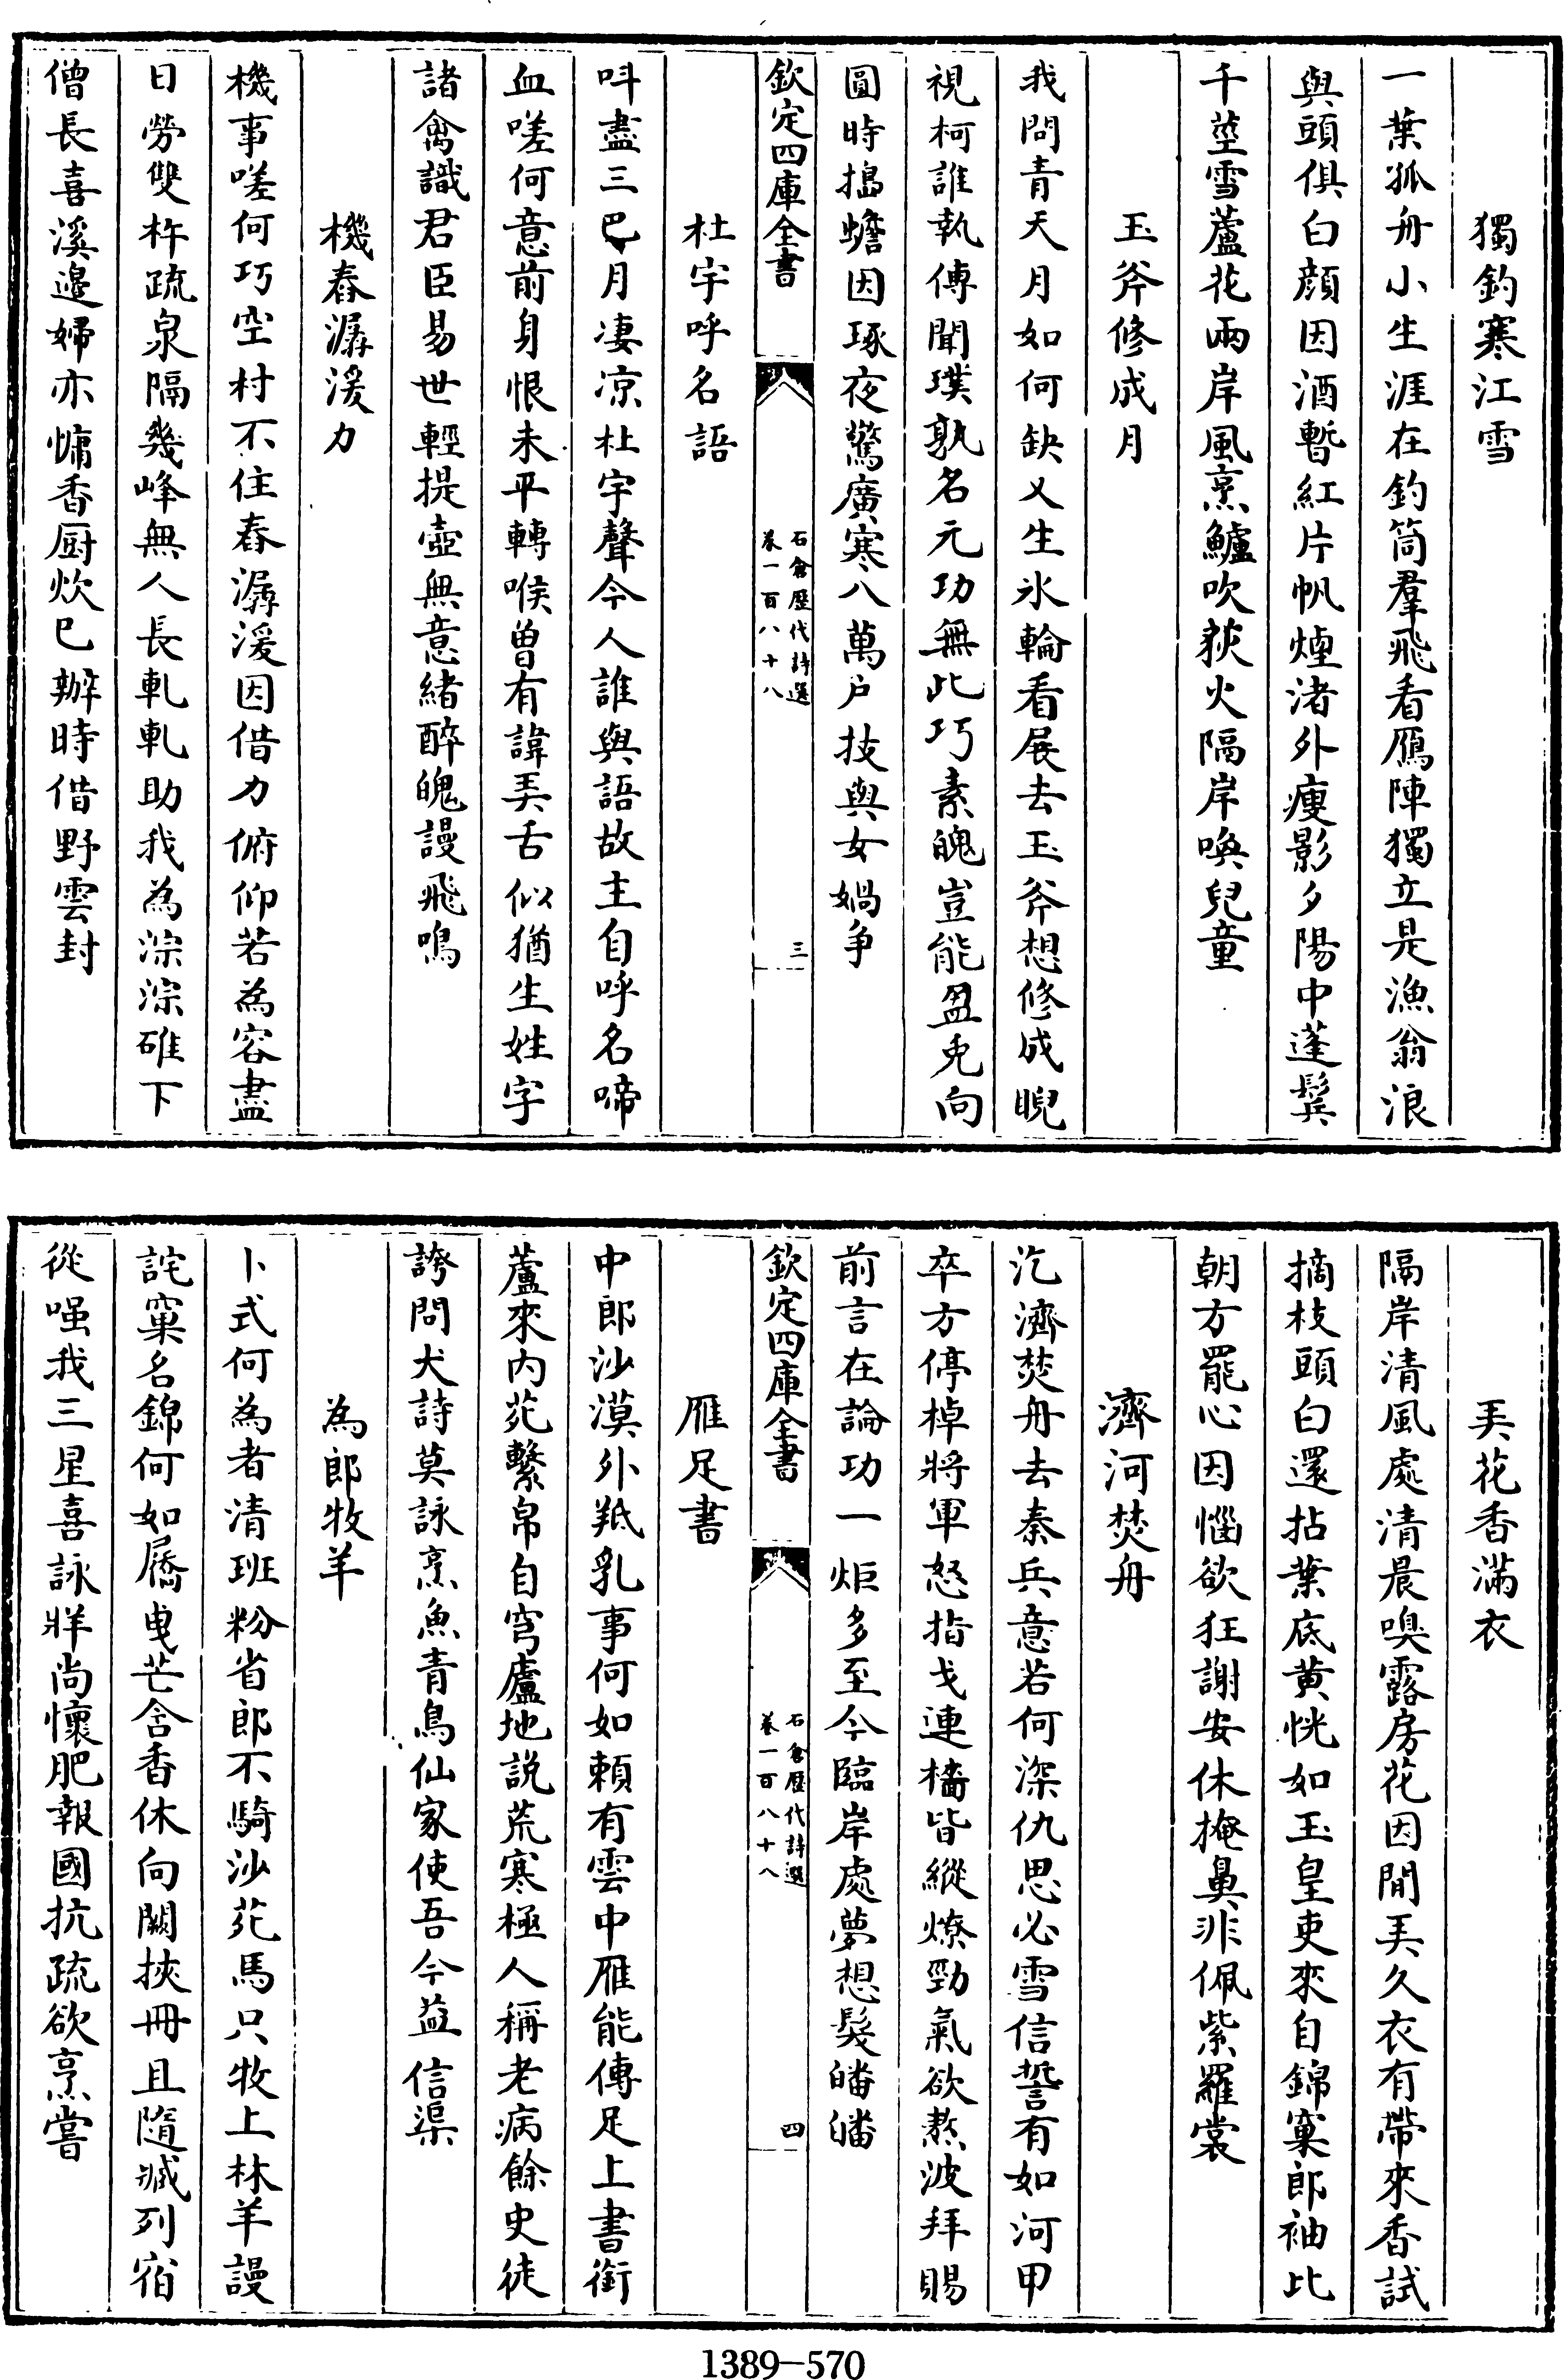 獨釣寒江雪
一葉孤舟小生涯在釣筒羣飛看鴈陣獨立是漁翁浪
與頭俱白顔因酒暫紅片帆煙渚外瘦影夕陽中蓬鬂
千莖雪蘆花兩岸風烹鱸吹荻火隔岸喚兒童
玉斧修成月
我問青天月如何缺乂生氷輪看展去玉斧想修成睨
視柯誰執傳聞璞孰名元功無此巧素魄豈能盈兎向
圓時搗蟾因琢夜驚廣寒八萬户技與女媧争
欽定四庫全書
石倉歴代詩選
卷一百八十八
三
杜宇呼名語
呌盡三巴月凄凉杜宇聲今人誰與語故主自呼名啼
血嗟何意前身恨未平轉喉曽有諱弄舌似猶生姓字
諸禽識君臣易世輕提壺無意緒醉魄謾飛鳴
機舂潺湲力
機事嗟何巧空村不住舂潺湲因借力俯仰若為容盡
日勞雙杵疏泉隔幾峰無人長軋軋助我為淙淙碓下
僧長喜溪邉婦亦慵香厨炊已辦時借野雲封
弄花香滿衣
隔岸清風處清晨嗅露房花因閒弄久衣有帶來香試
摘枝頭白還拈葉底黄恍如玉皇吏來自錦窠郎袖比
朝方罷心因惱欲狂謝安休掩鼻非佩紫羅裳
濟河焚舟
汔濟焚舟去秦兵意若何深仇思必雪信誓有如河甲
卒方停棹將軍怒指戈連檣皆縱燎勁氣欲熬波拜賜
前言在論功一炬多至今臨岸處夢想髮皤皤
欽定四庫全書
石倉歴代詩選
卷一百八十八
四
雁足書
中郎沙漠外羝乳事何如頼有雲中雁能傳足上書銜
蘆來内苑繫帛自穹廬地説荒寒極人稱老病餘史徒
誇問犬詩莫詠烹魚青鳥仙家使吾今益信渠
為郎牧羊
卜式何為者清班粉省郎不騎沙苑馬只牧上林羊謾
詫窠名錦何如屩曳芒含香休向闕挾冊且隨臧列宿
從嗤我三星喜詠牂尚懷肥報國抗疏欲烹嘗
1389—570